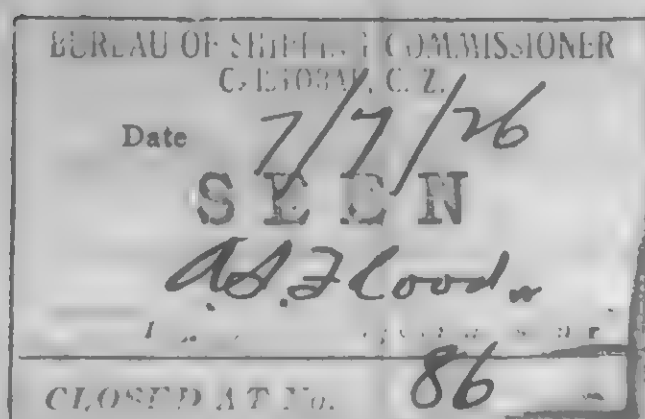 BUREAU OF SHIPPING COMMISSIONER
CRISTOBAL, C. Z.
Date 7/7/26
SEEN
A.S. Flood
CLOSED AT No. 86